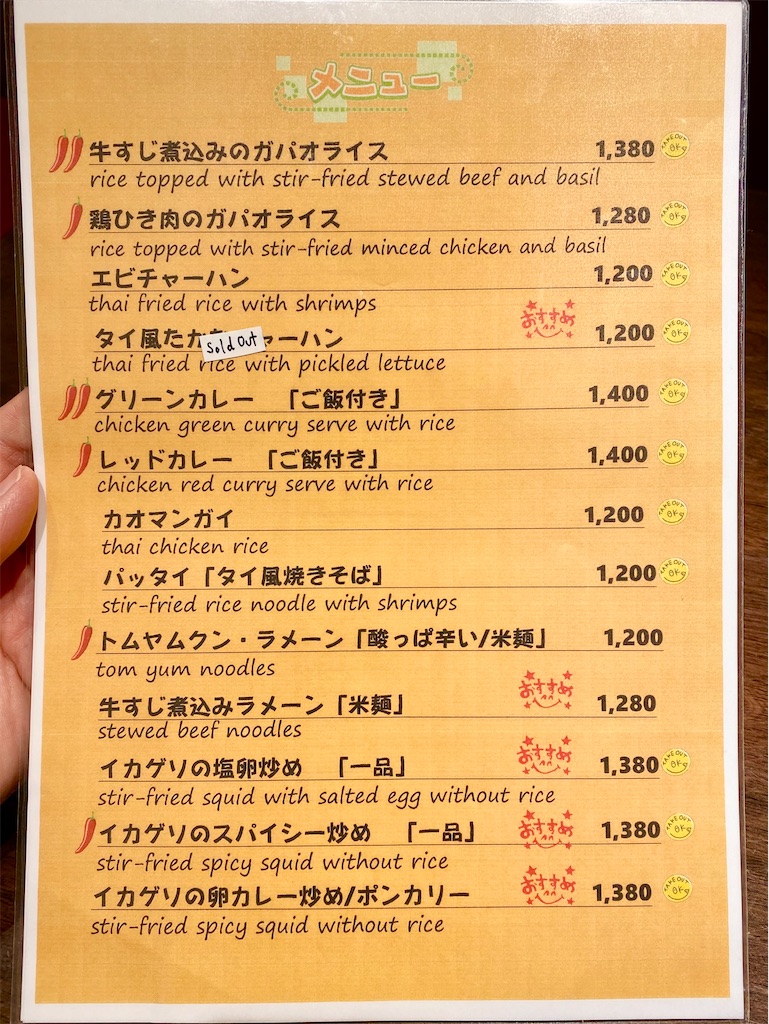 メニュー
牛すじ煮込みのガパオライス 1,380 TAKE OUT OK
rice topped with stir-fried stewed beef and basil
鶏ひき肉のガパオライス 1,280 TAKE OUT OK
rice topped with stir-fried minced chicken and basil
エビチャーハン 1,200 TAKE OUT OK
thai fried rice with shrimps
タイ風たか Sold Out ャーハン おすすめ 1,200 TAKE OUT OK
thai fried rice with pickled lettuce
グリーンカレー 「ご飯付き」 1,400 TAKE OUT OK
chicken green curry serve with rice
レッドカレー 「ご飯付き」 1,400 TAKE OUT OK
chicken red curry serve with rice
カオマンガイ 1,200 TAKE OUT OK
thai chicken rice
パッタイ「タイ風焼きそば」 1,200 TAKE OUT OK
stir-fried rice noodle with shrimps
トムヤムクン・ラメーン「酸っぱ辛い/米麺」 1,200
tom yum noodles
牛すじ煮込みラメーン「米麺」 おすすめ 1,280
stewed beef noodles
イカゲソの塩卵炒め 「一品」 おすすめ 1,380 TAKE OUT OK
stir-fried squid with salted egg without rice
イカゲソのスパイシー炒め 「一品」 おすすめ 1,380 TAKE OUT OK
stir-fried spicy squid without rice
イカゲソの卵カレー炒め/ポンカリー おすすめ 1,380 TAKE OUT OK
stir-fried spicy squid without rice